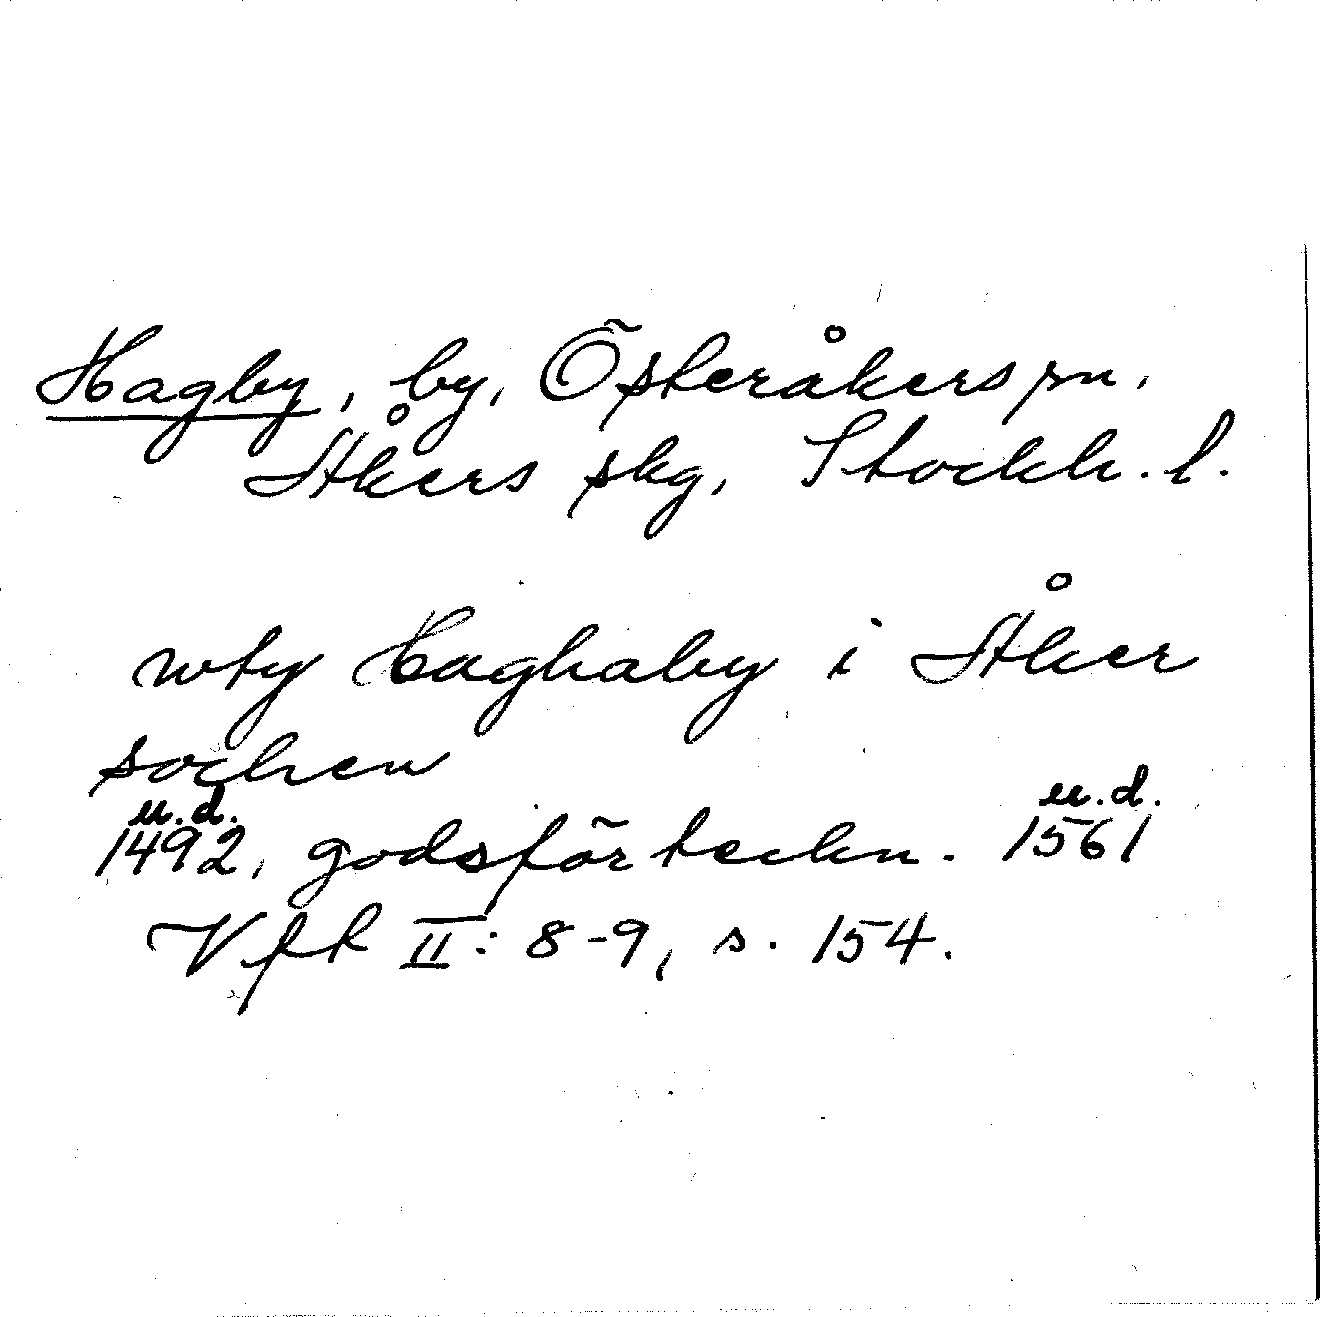 Hagby, by, Österåkers sn,
Åkers skg, Stockh. l.
wty Haghaby i Åker
sochen
u.d. u.d.
1492, godsförteckn. 1561
Vfk II: 8-9, s. 154.